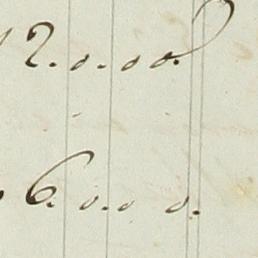 2.0.00.
6.0.0 0.